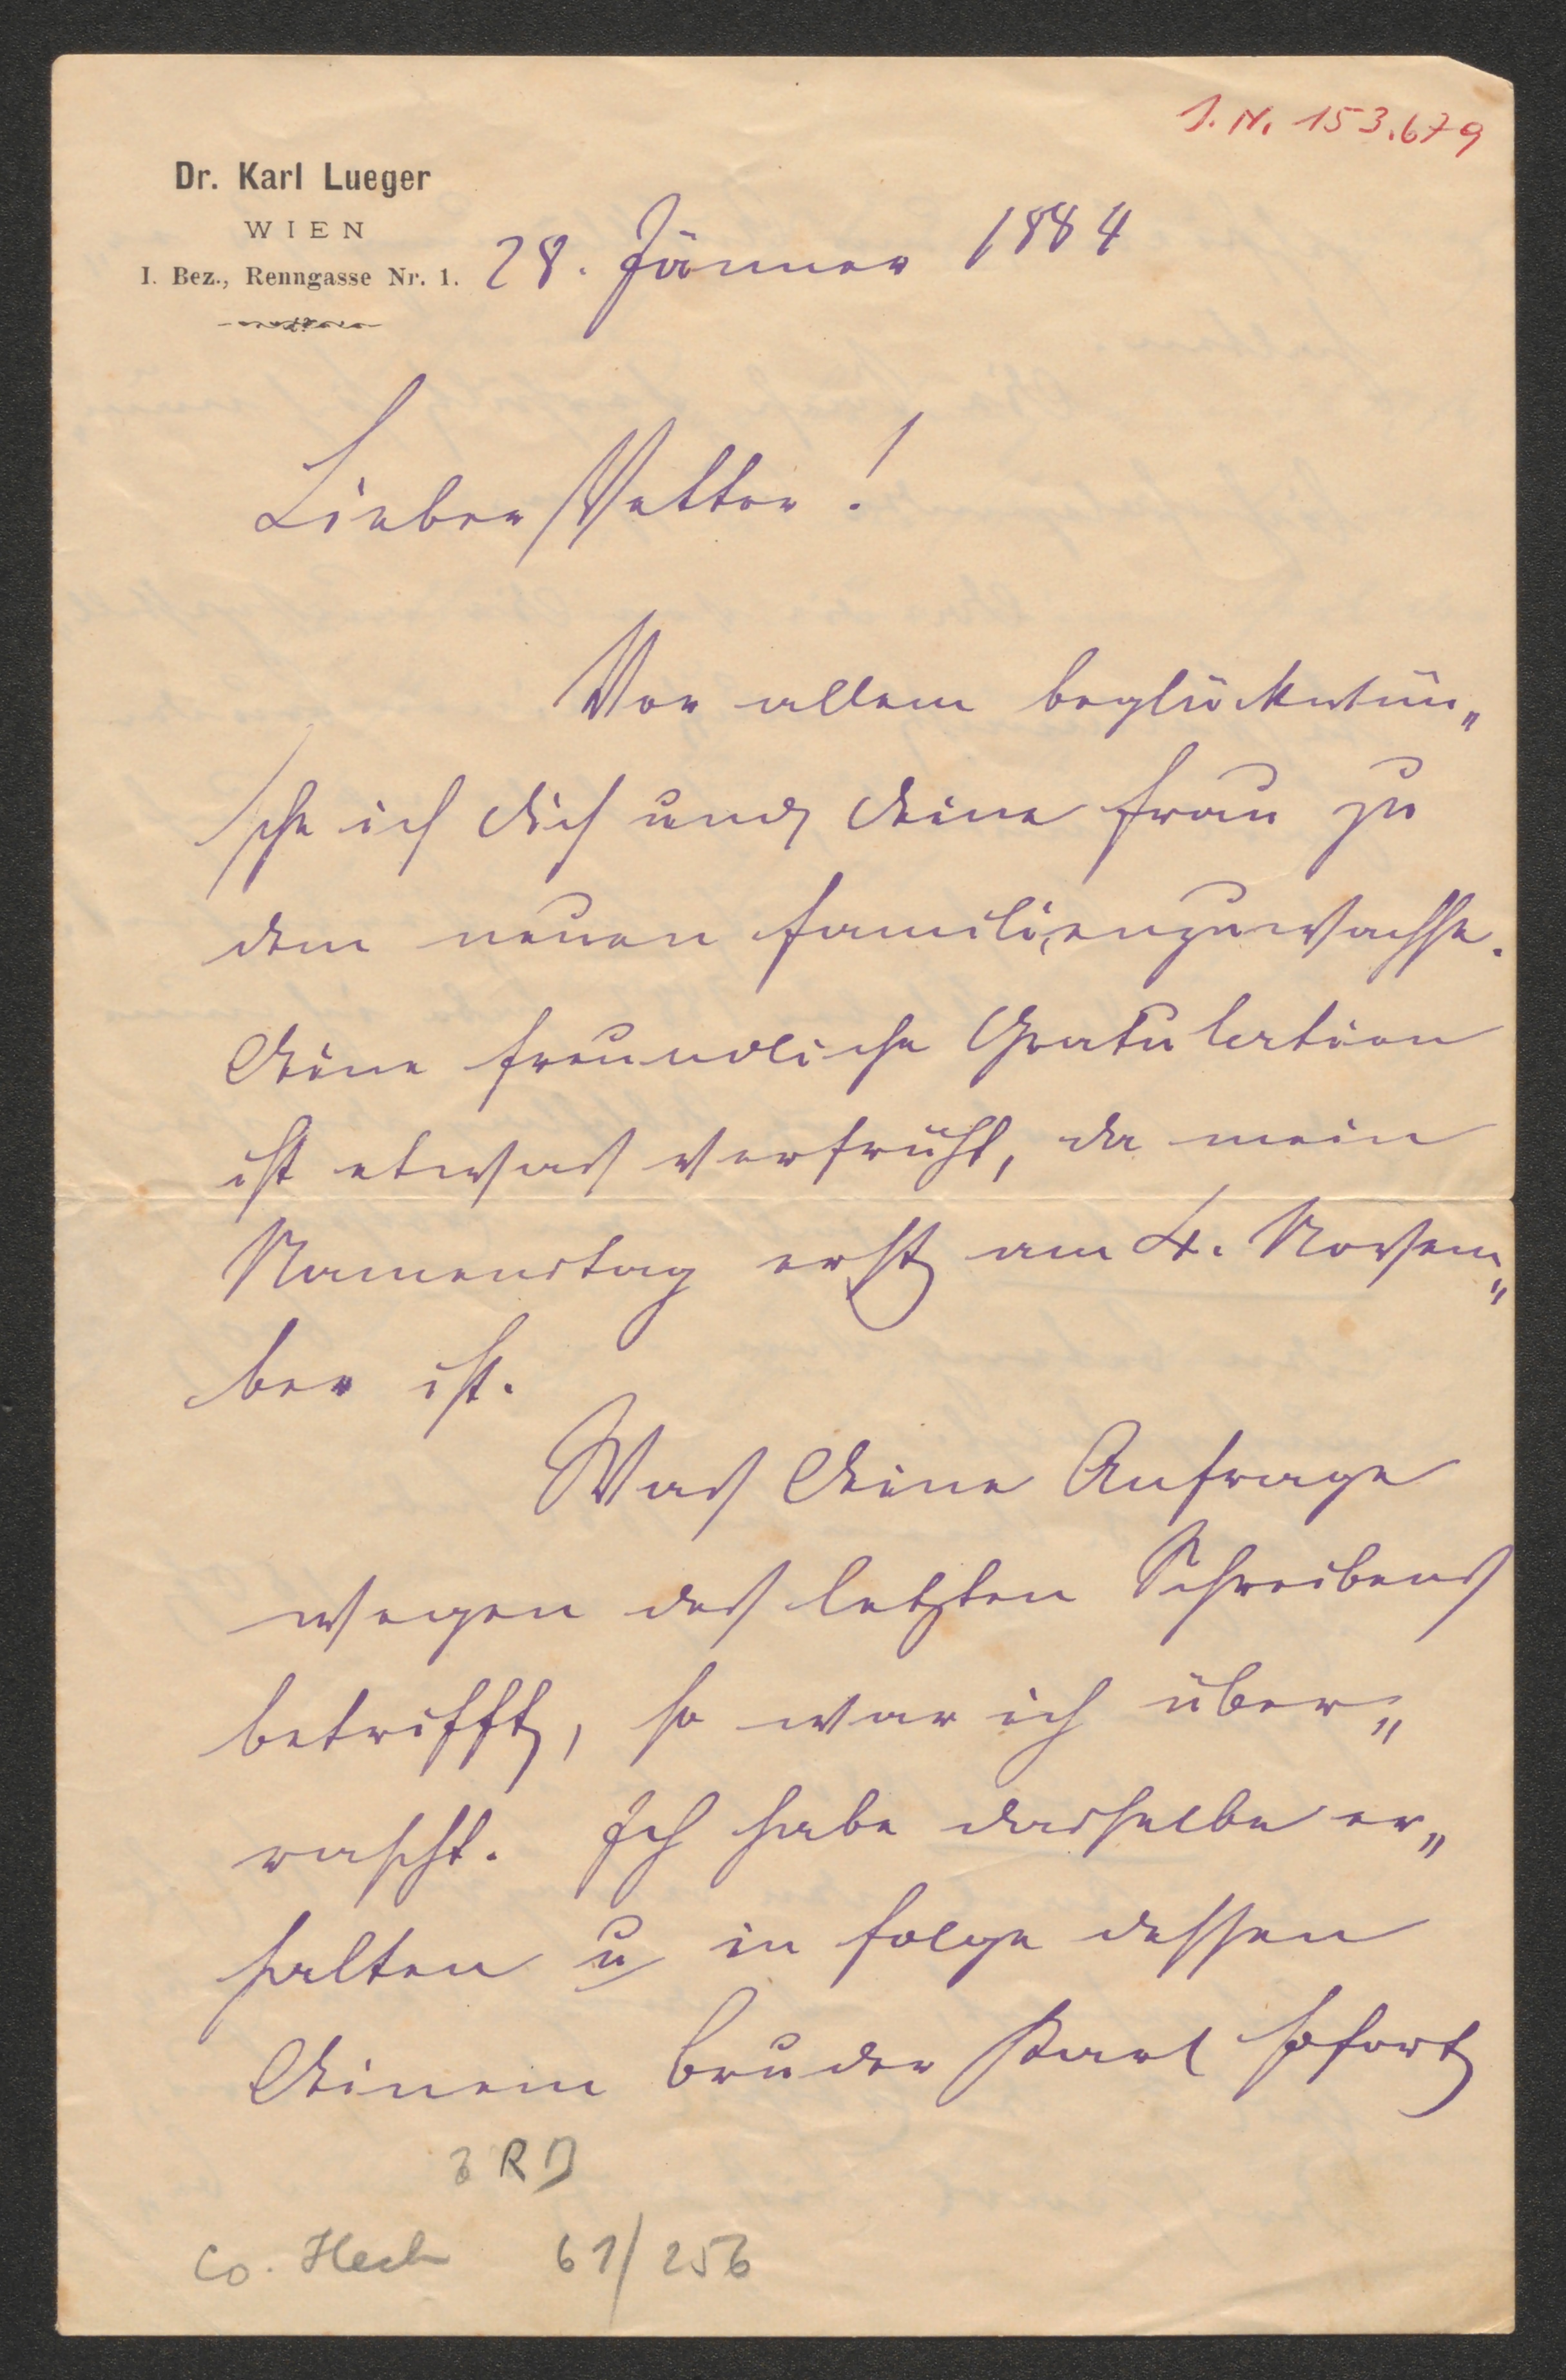 I. N. 153.679
Dr. Karl Lueger
WIEN
I. Bez., Renngasse Nr. 1.
28. Jänner 1884
Lieber Vetter!
Vor allem beglückwün„
sche ich dich und deine Frau zu
dem neuen Familienzuwachse.
Deine freundliche Gratulation
ist etwas verfrüht, da mein
Namenstag erst am 4. Novem„
ber ist.
Was Deine Anfrage
wegen des letzten Schreibens
betrifft, so war ich über„
rascht. Ich habe dasselbe er„
halten u in Folge dessen
Deinem Bruder Karl sofort
3 RD
Co. 61/256